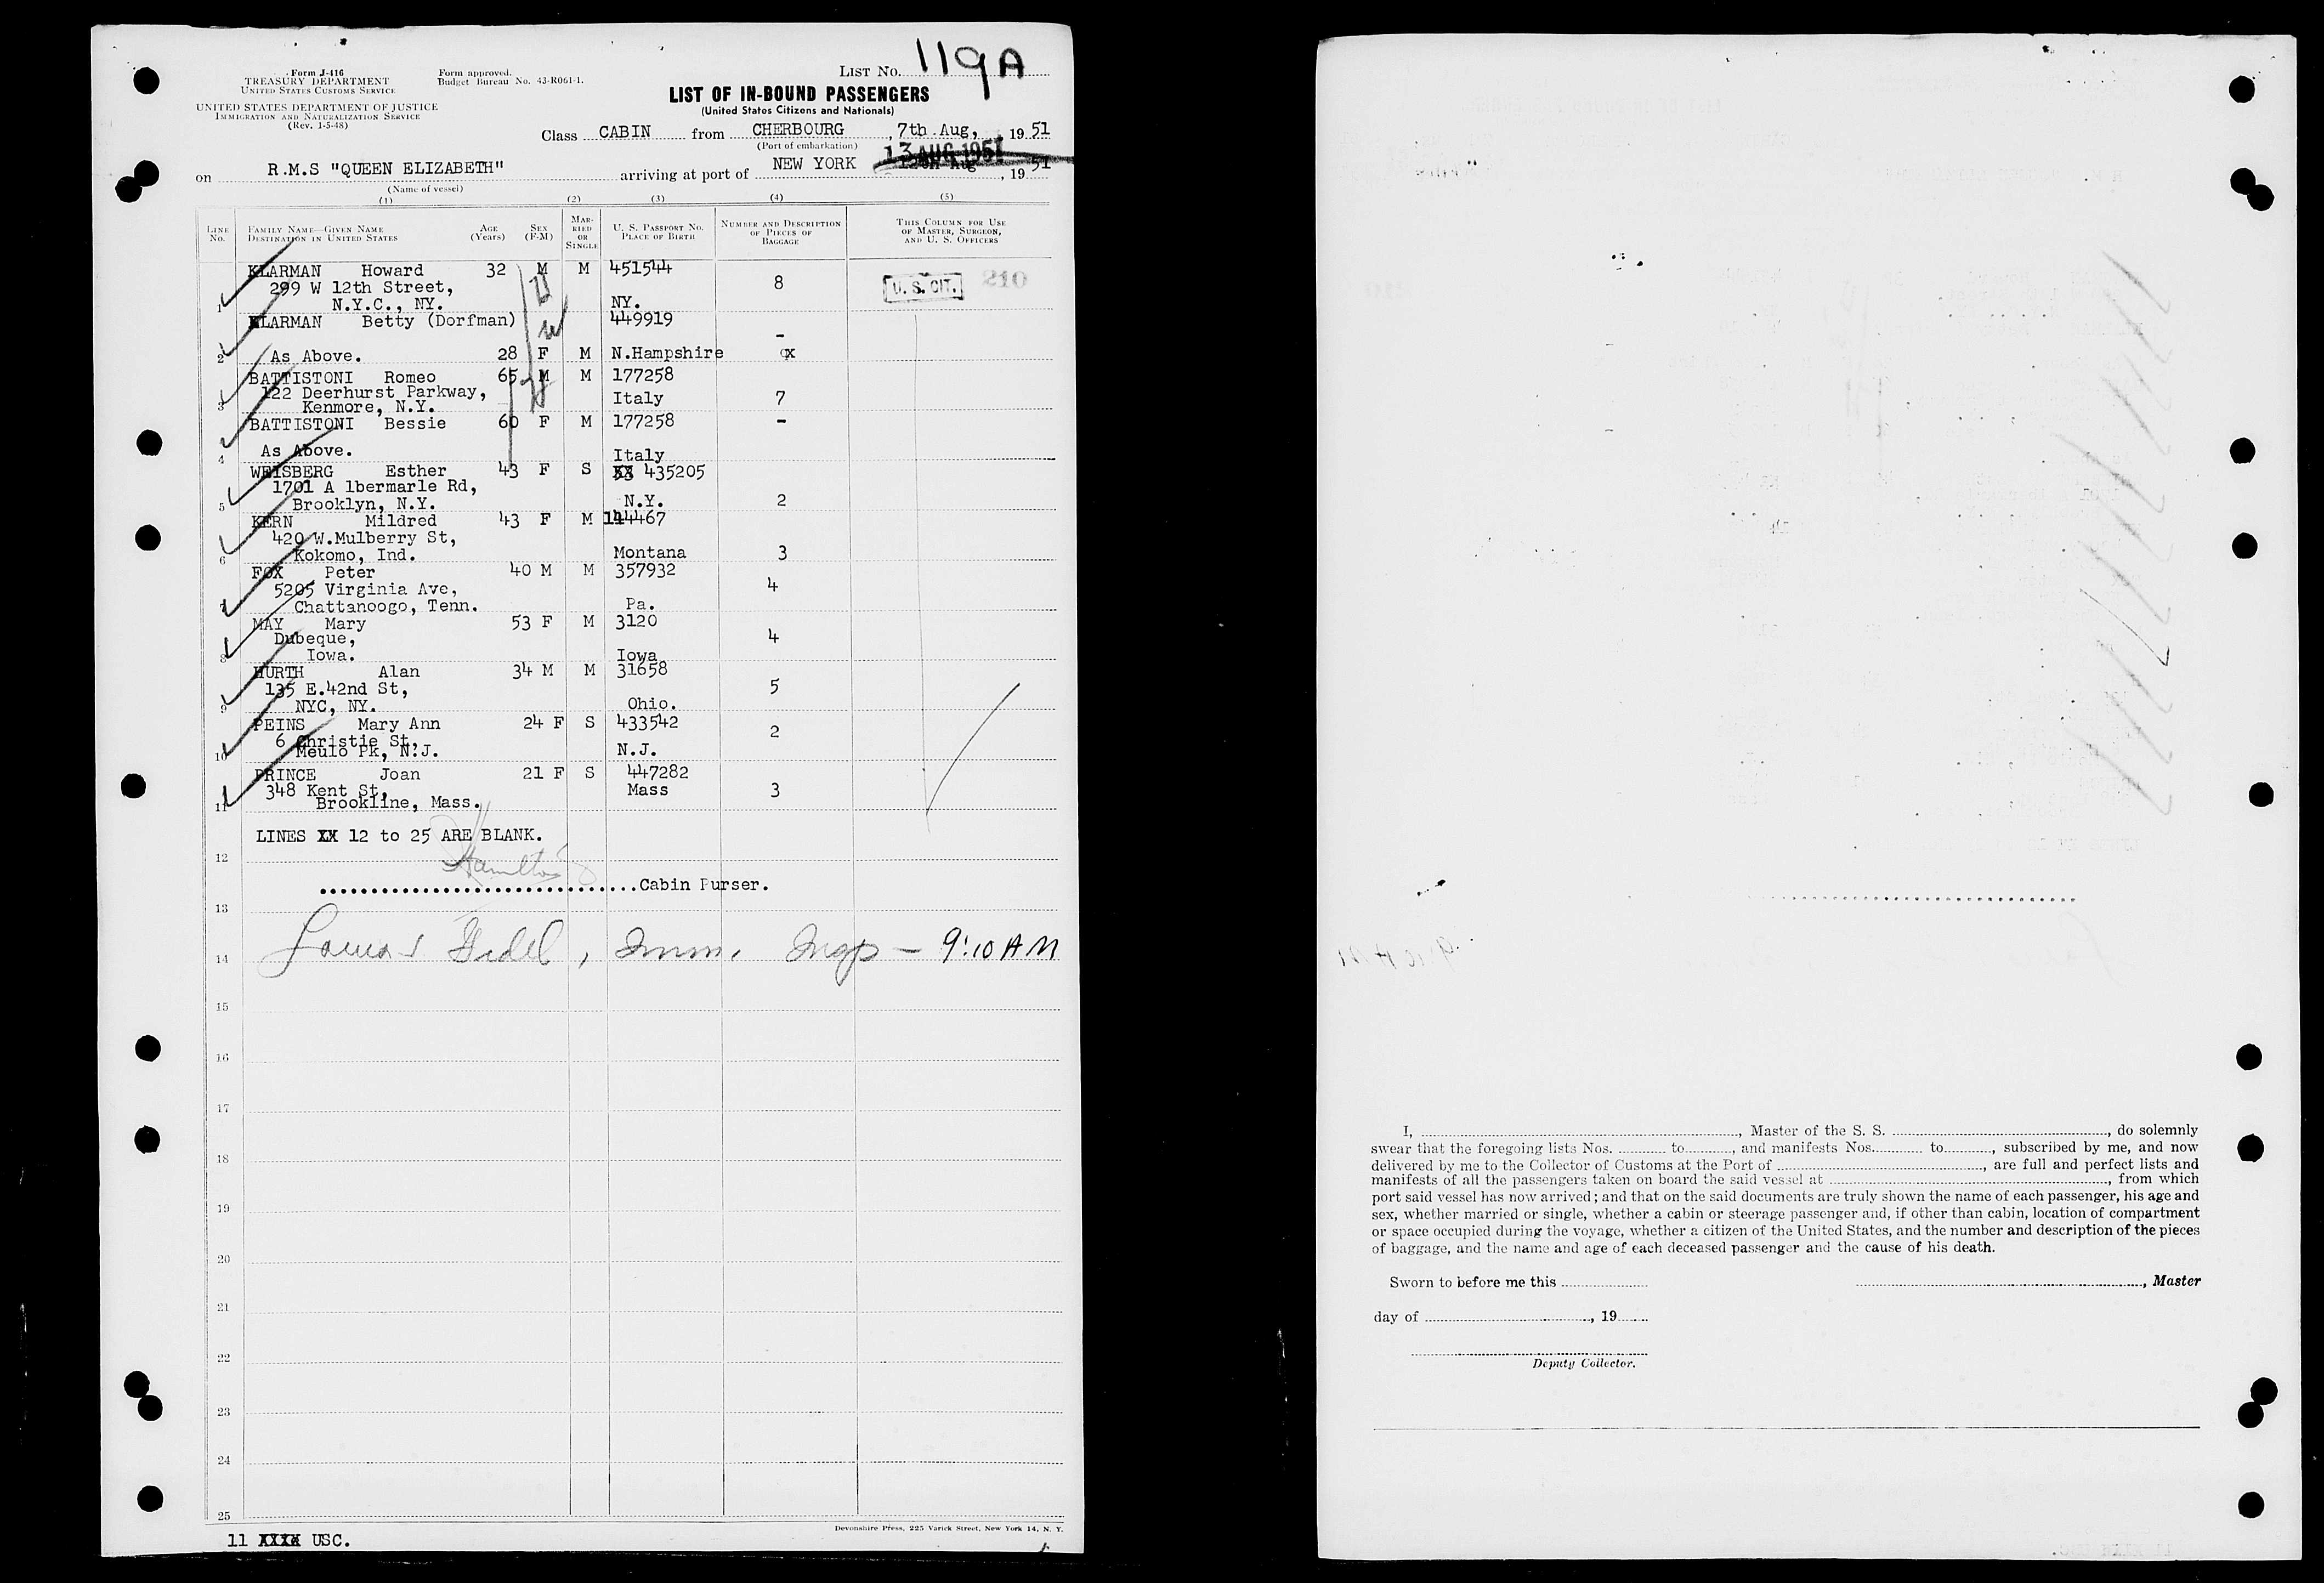 Form J-416
TREASURY DEPARTMENT
UNITED STATES CUSTOMS SERVICE
UNITED STATES DEPARTMENT OF JUSTICE
IMMIGRATION AND NATURALIZATION SERVICE
(Rev. 1-5-48)
Form approved.
Budget Bureau No. 43-R061-1.
LIST No. 119A
LIST OF IN-BOUND PASSENGERS
(United States Citizens and Nationals)
Class CABIN from CHERBOURG, 7th Aug, 1951
(Port of embarkation)
13 AUG 1951
on R.M.S "QUEEN ELIZABETH" arriving at port of NEW YORK 12th Aug, 1951
(Name of vessel)
(1) (2) (3) (4) (5)
LINE No.
FAMILY NAME—GIVEN NAME
DESTINATION IN UNITED STATES
AGE (Years)
SEX (F-M)
MARRIED OR SINGLE
U. S. PASSPORT No.
PLACE OF BIRTH
NUMBER AND DESCRIPTION OF PIECES OF BAGGAGE
THIS COLUMN FOR USE OF MASTER, SURGEON, AND U. S. OFFICERS
KLARMAN Howard 32 M M 451544
299 W 12th Street, 8 U. S. CIT. 210
1 N.Y.C., NY. NY.
KLARMAN Betty (Dorfman) 449919
-
2 As Above. 28 F M N.Hampshire
BATTISTONI Romeo 65 M M 177258
122 Deerhurst Parkway, Italy 7
3 Kenmore, N.Y.
BATTISTONI Bessie 60 F M 177258 -
4 As Above. Italy
WEISBERG Esther 43 F S XX 435205
1701 A lbermarle Rd,
5 Brooklyn, N.Y. N.Y. 2
KERN Mildred 43 F M 144467
420 W.Mulberry St,
6 Kokomo, Ind. Montana 3
FOX Peter 40 M M 357932
5205 Virginia Ave, 4
7 Chattanoogo, Tenn. Pa.
MAY Mary 53 F M 3120
Dubeque, 4
8 Iowa. Iowa
HURTH Alan 34 M M 31658
135 E.42nd St, 5
9 NYC, NY. Ohio.
PEINS Mary Ann 24 F S 433542
6 Christie St, 2
10 Meulo Pk, N.J. N.J.
PRINCE Joan 21 F S 447282
348 Kent St, Mass 3
11 Brookline, Mass.
LINES XX 12 to 25 ARE BLANK.
12 Hamilton
...............................Cabin Purser.
13
14 Fidel, Imm. Insp — 9:10 AM
15
16
17
18
19
20
21
22
23
24
25
Devonshire Press, 225 Varick Street, New York 14, N. Y.
11 XXXX USC.
I, , Master of the S. S. , do solemnly
swear that the foregoing lists Nos. to , and manifests Nos. to , subscribed by me, and now
delivered by me to the Collector of Customs at the Port of , are full and perfect lists and
manifests of all the passengers taken on board the said vessel at , from which
port said vessel has now arrived; and that on the said documents are truly shown the name of each passenger, his age and
sex, whether married or single, whether a cabin or steerage passenger and, if other than cabin, location of compartment
or space occupied during the voyage, whether a citizen of the United States, and the number and description of the pieces
of baggage, and the name and age of each deceased passenger and the cause of his death.
Sworn to before me this , Master
day of , 19
Deputy Collector.